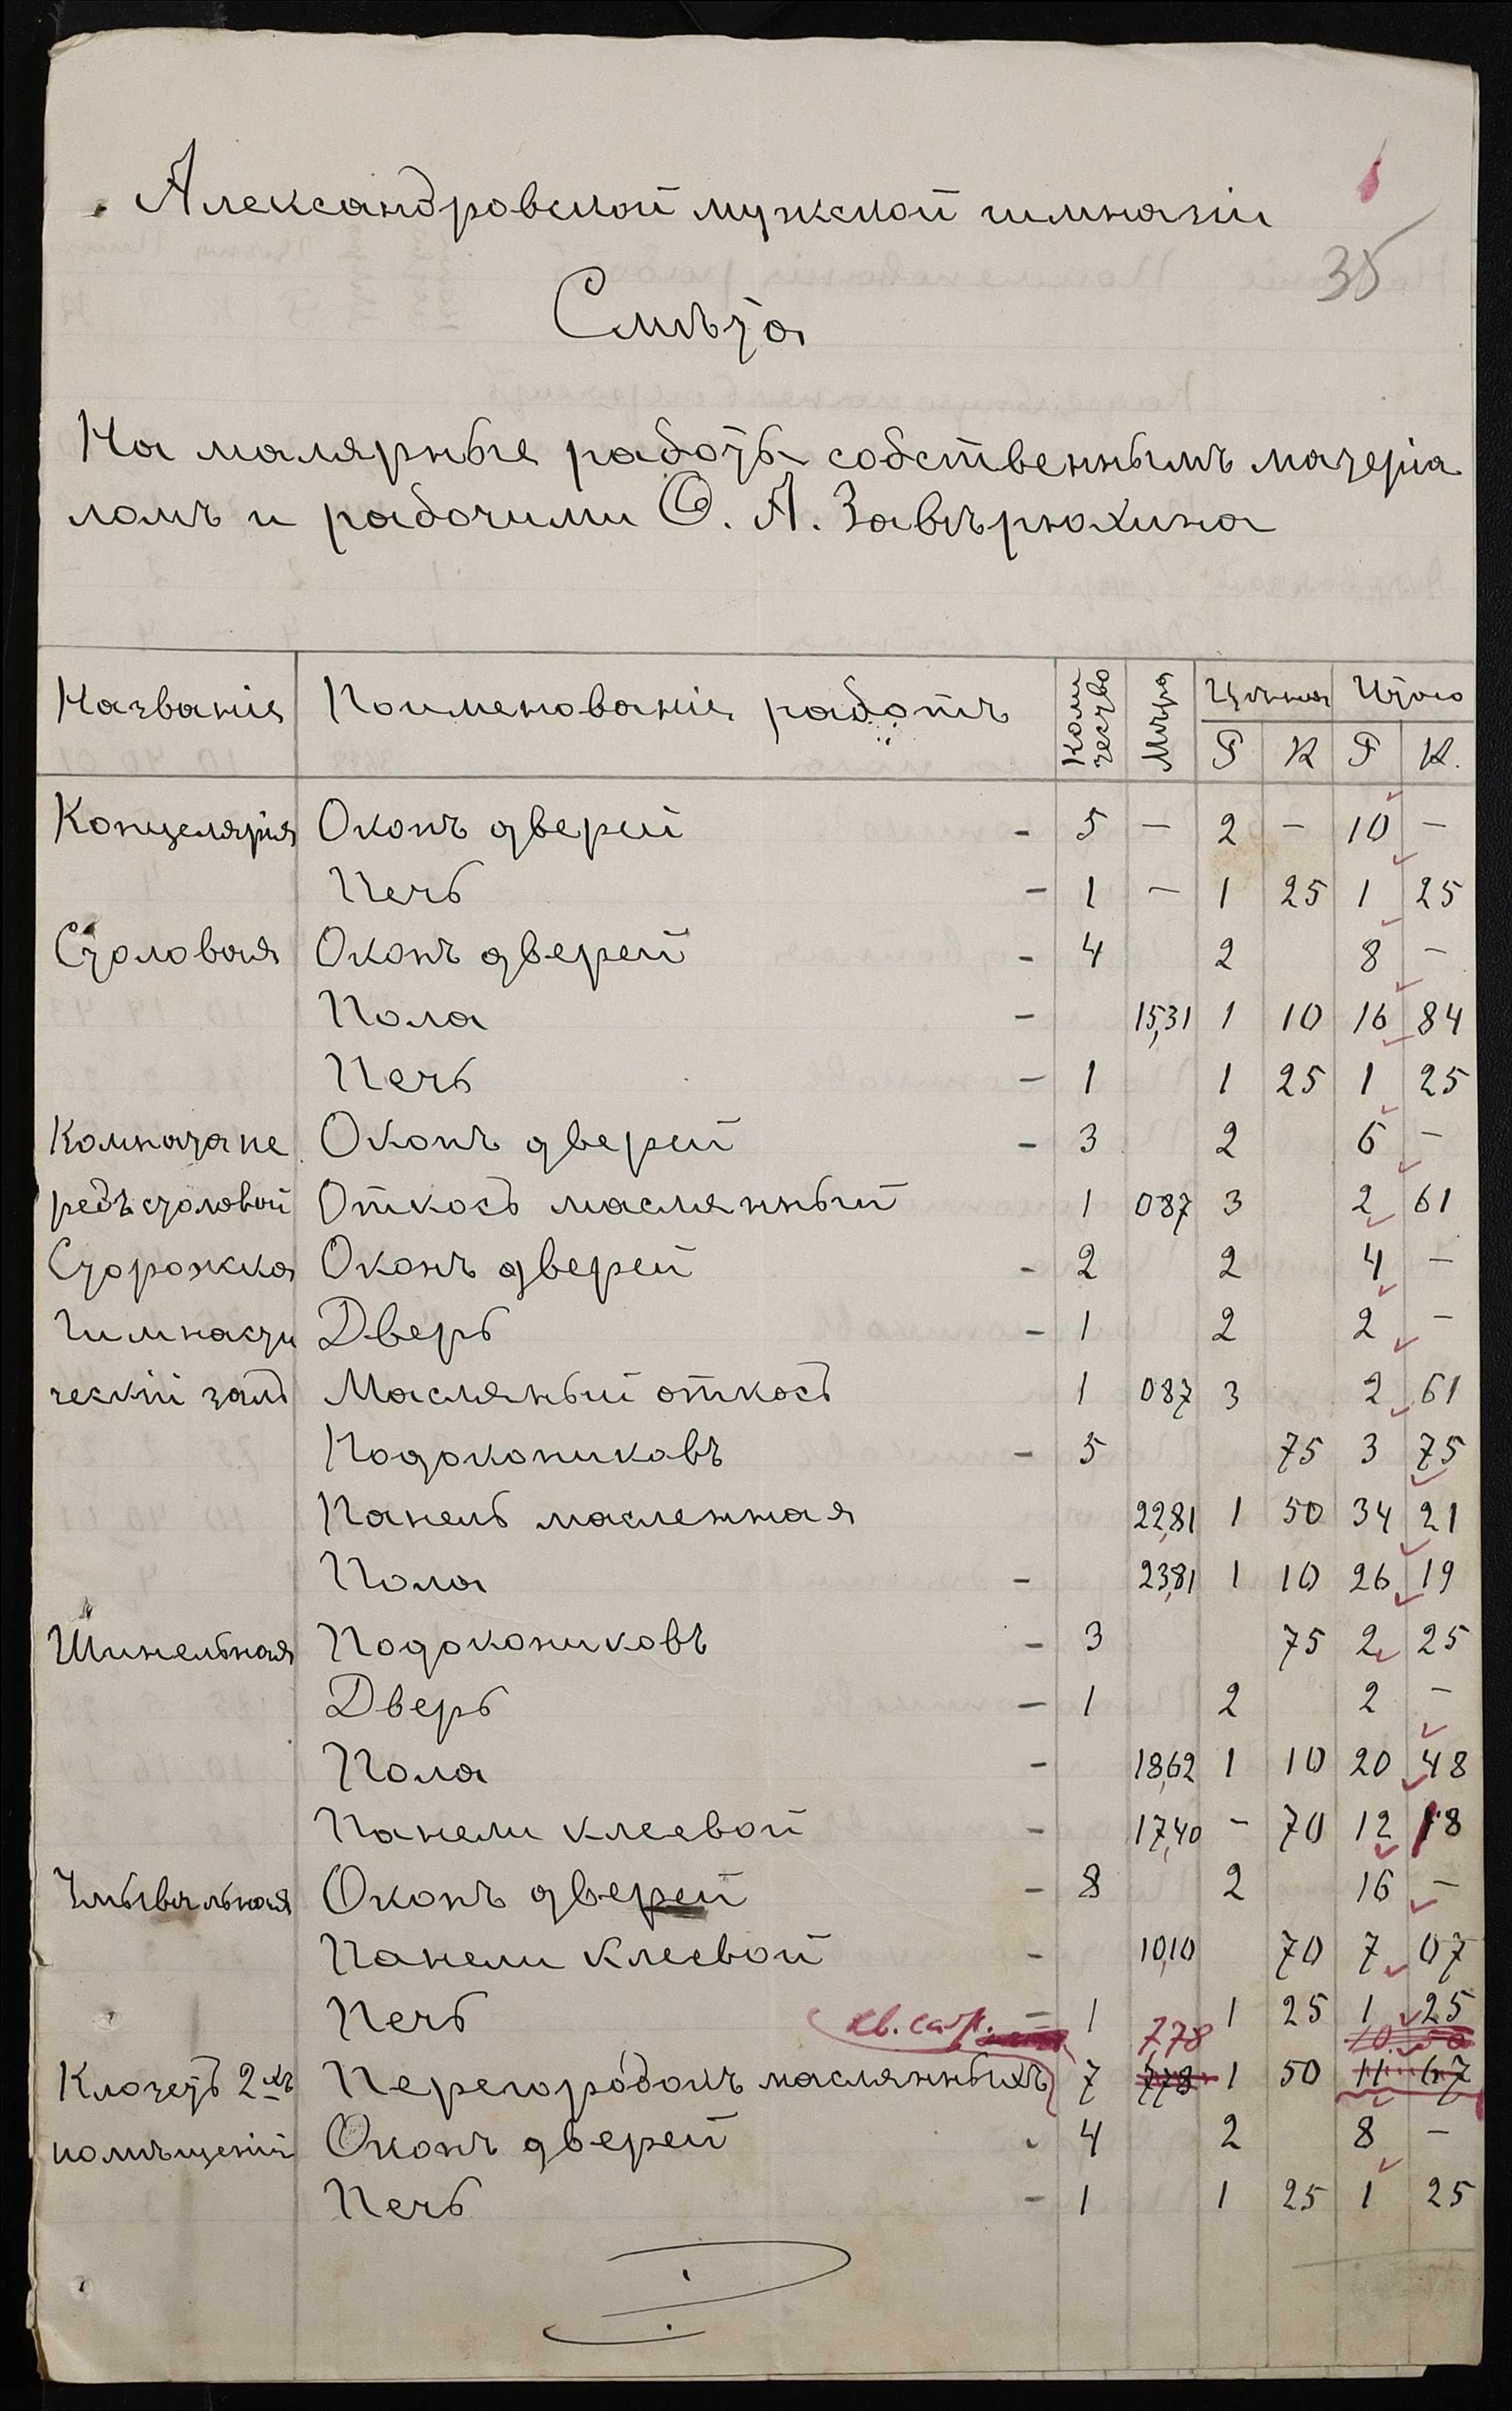 Александровской мужской гимназіи
35
Смѣта
На малярные работы собственнымъ матеріа
ломъ и рабочими Ѳ. А. Завѣрюхина
Названіе Поименованіе работъ Коли чество Мѣра Цѣна Итого
Р К Р К.
Концелярія Оконъ дверей - 5 — 2 — 10 —
Печь - 1 — 1 25 1 25
Столовая Оконъ дверей - 4 2 8 —
Пола - 15,31 1 10 16 84
Печь - 1 1 25 1 25
Комната пе Оконъ дверей - 3 2 6 —
редъ столовой Откосъ маслянный 1 087 3 2 61
Сторожка Оконъ дверей - 2 2 4 —
Гимнасти Дверь - 1 2 2 —
ческій залъ Масляный откосъ 1 087 3 2 61
Подокониковъ - 5 75 3 75
Панель масленная 22,81 1 50 34 21
Пола - 23,81 1 10 26 19
Шинельная Подокониковъ - 3 75 2 25
Дверь - 1 2 2 —
Пола - 18,62 1 10 20 48
Панели клеевой - 17,40 - 70 12 18
Умывальная Оконъ дверей - 8 2 16 —
Панели клеевой - 10,10 70 7 07
Печь - 1 1 25 1 25
кв. саж. 7,78 10.50
Клозетъ 2хъ Перегородокъ маслянныхъ 7 7,78 1 50 11 67
помѣщеній Оконъ дверей - 4 2 8 —
Печь - 1 1 25 1 25